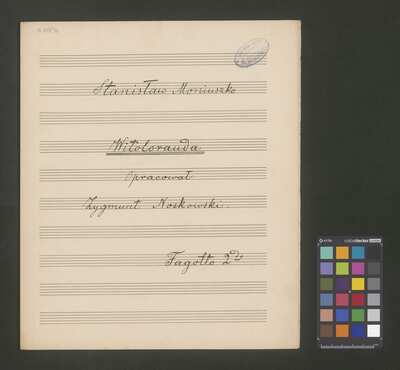 Stanisław Moniuszko
Witolorauda
Opracował
Zygmunt Noskowski.
Fagotto 2do